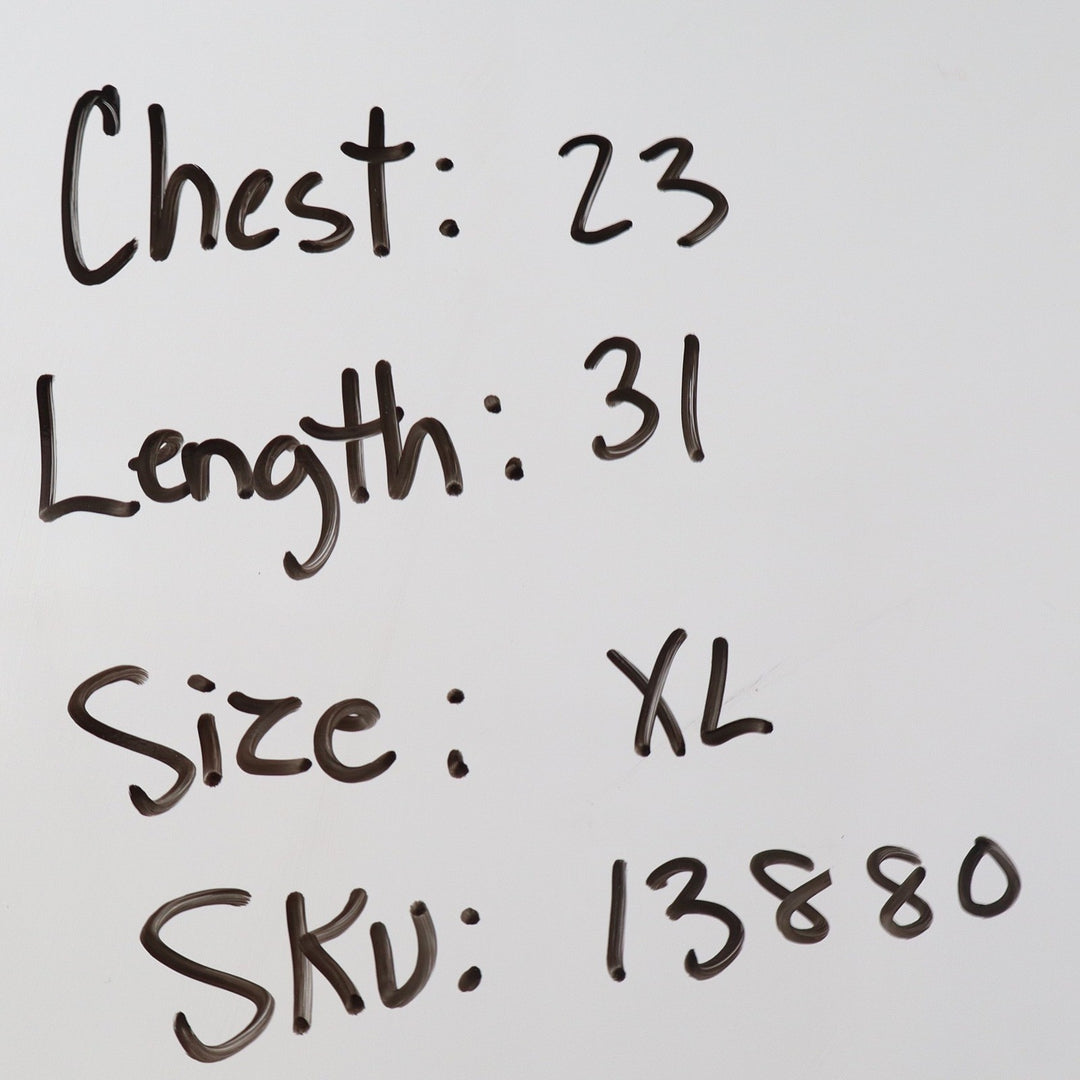 Chest: 23
Length: 31
Size: XL
SKU: 13880